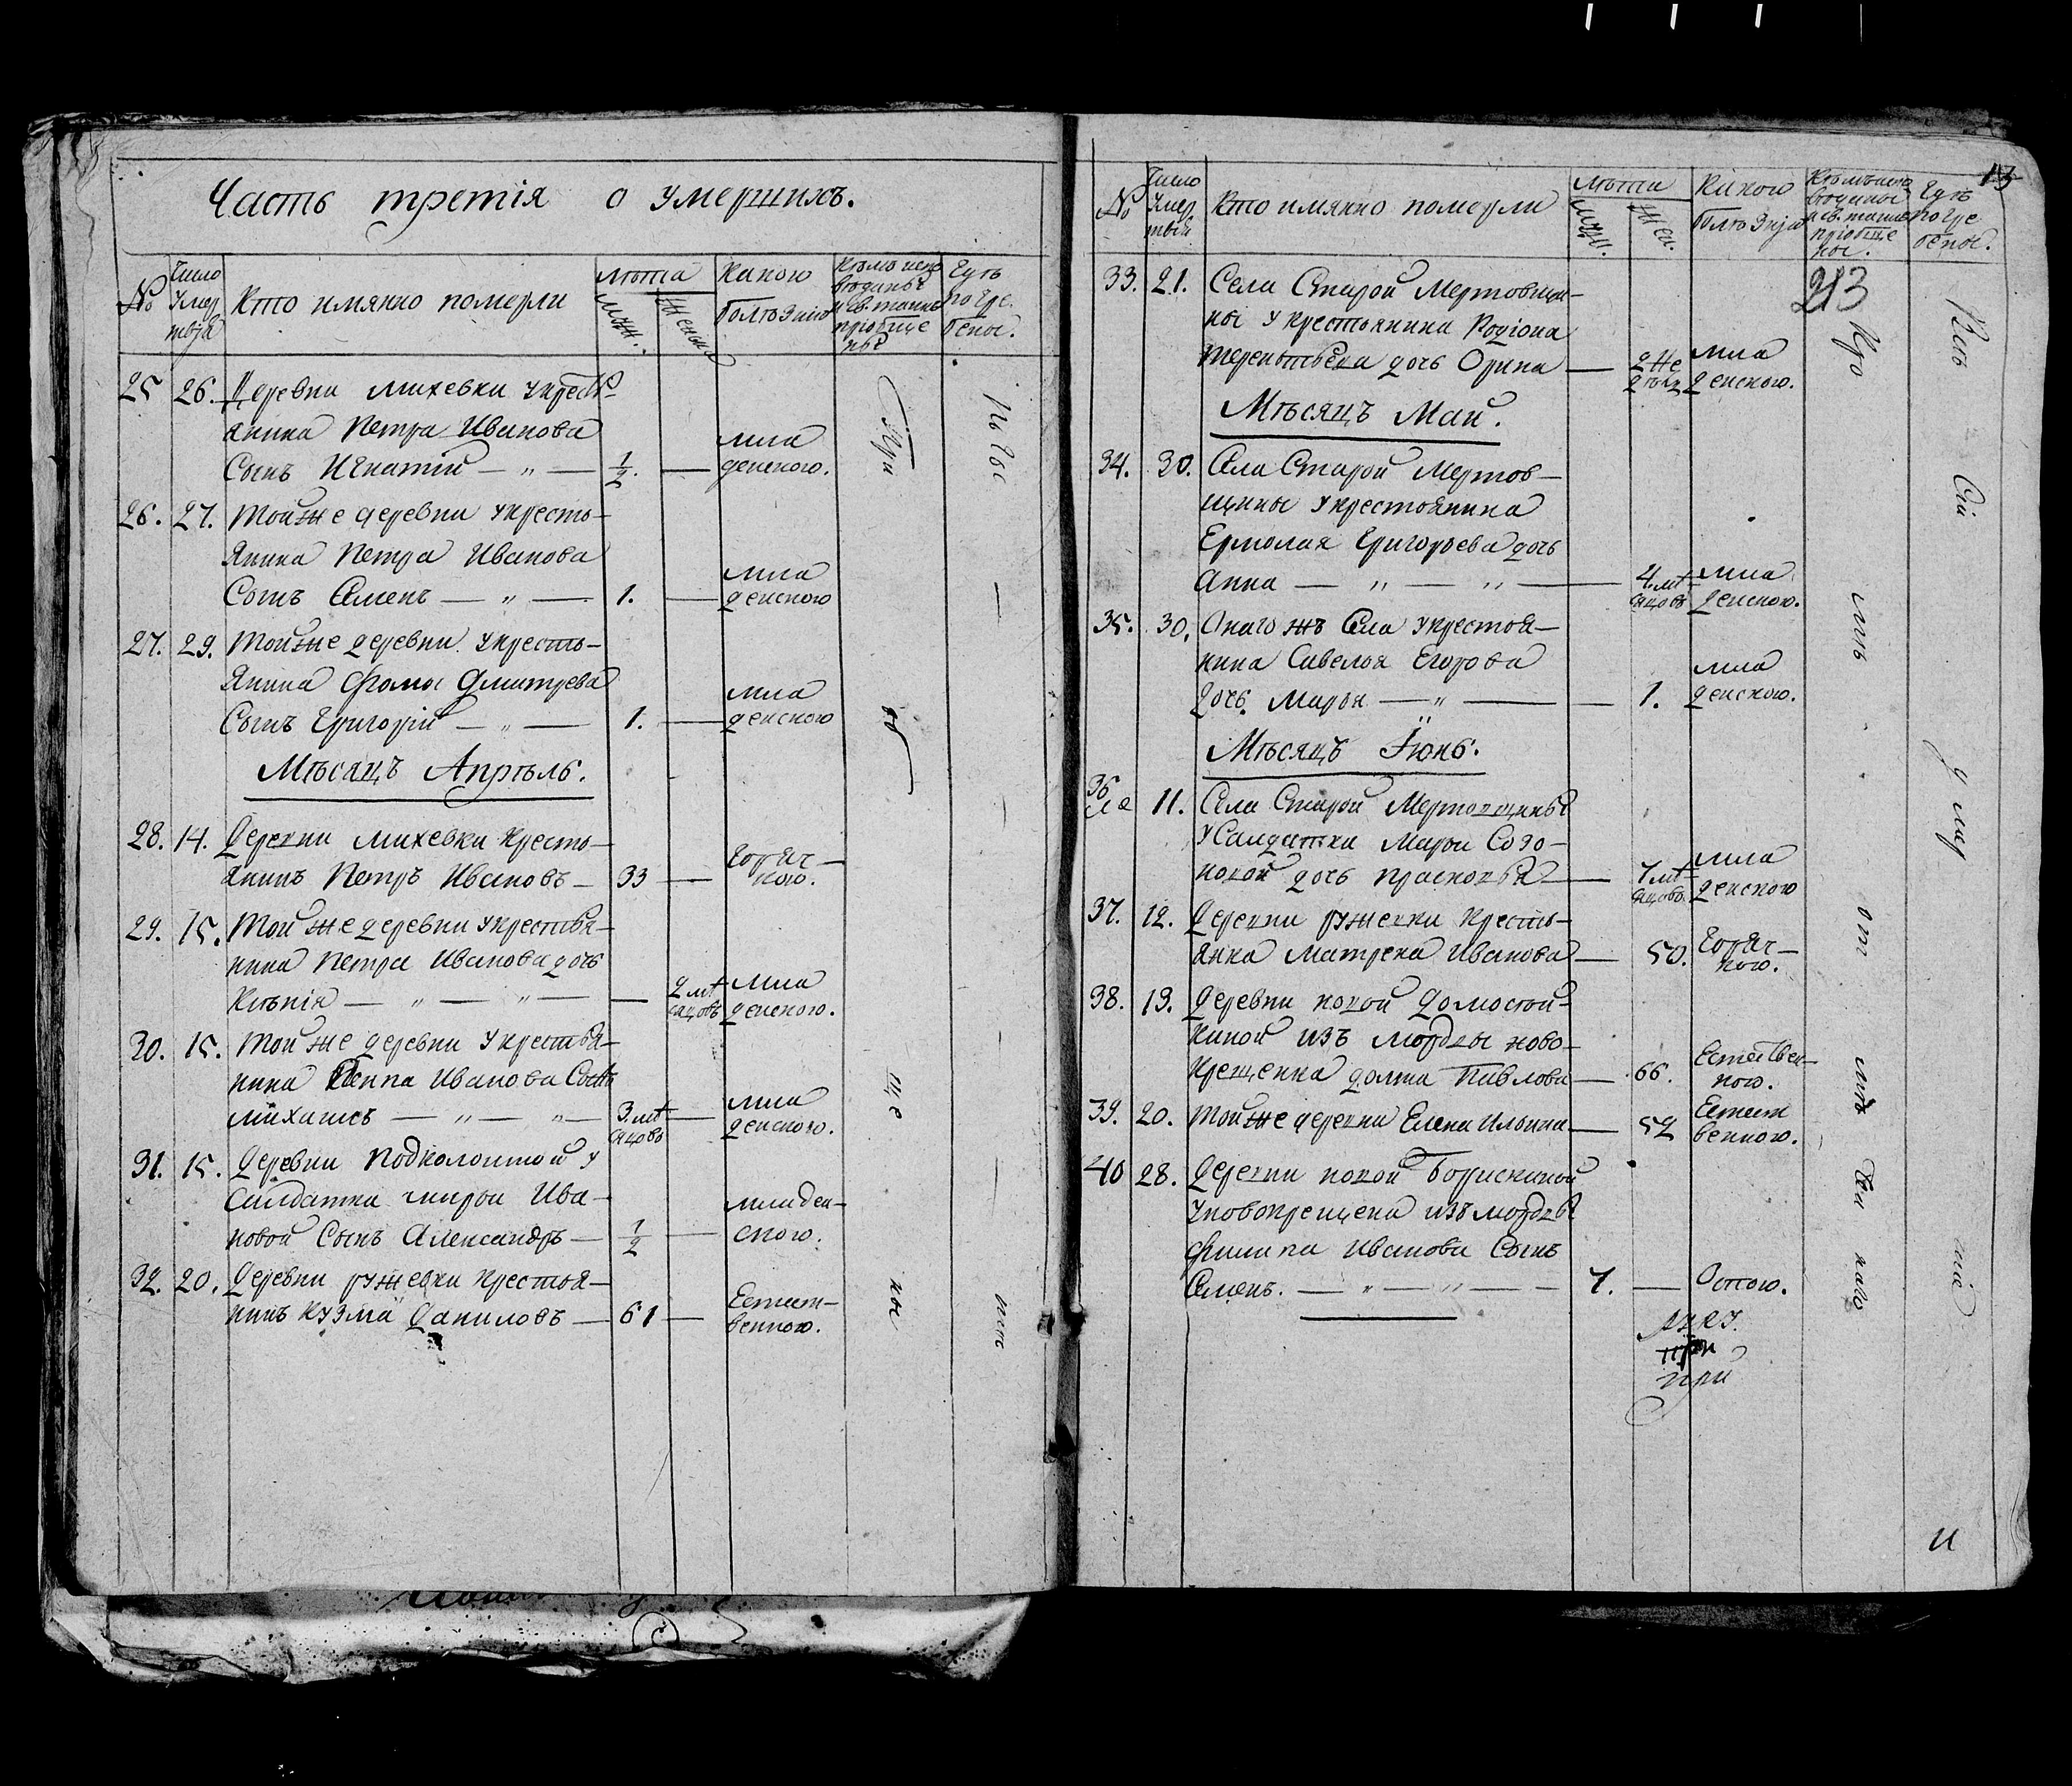 Часть третія о умершихъ.
№ Число умертвія Кто имянно померли Лѣта муж. женска Какою болѣзнію Кѣмъ исповѣданы и св. таинъ пріобщены Гдѣ погребены.
25 26. Деревни Михевки у крестьянина Петра Иванова
Сынъ Игнатій — „ — 1/2. — младенскою.
26. 27. Той же деревни у кресть-
янина Петра Иванова
Сынъ Семенъ — „ — 1. — младенскою
27. 29. Той же деревни у кресть-
янина Фомы Дмитрева
Сынъ Григорій — „ — 1. — младенскою
Мѣсяцъ Апрѣль.
28. 14. Деревни Михевки кресть-
янинъ Петръ Ивановъ — 33 — Горяч-
кою.
29. 15. Той же деревни у крестья-
нина Петра Иванова дочь
Ксѣнія — „ — „ — — 2 мѣсяцовъ младенскою.
30. 15. Той же деревни у крестья-
нина Осипа Иванова Сынъ
Михаилъ — „ — „ — 3. мѣсяцовъ — младенскою.
31. 15. Деревни Подколоитой у
Салдатки Марьи Ива-
новой Сынъ Александръ — 1/2 — младен-
скою.
32. 20. Деревни Ружевки крестья-
нинъ Кузма Даниловъ — 61 — Естест-
венною.
При
об
ще
ны
13
№ Число умертвій Кто имянно померли Лѣта муж. жен. Какою болѣзнію Кѣмъ исповѣданы и св. таинъ пріобщены. Гдѣ погребены.
213
33. 21. Села Старой Мертовщи-
ны у крестьянина Родіона
Терентьева дочь Орина — 2 недѣль младенскою.
Мѣсяцъ Май.
34. 30. Села Старой Мертов-
щины у крестьянина
Ермолая Григорьева дочь
Анна — „ — „ — 4 мѣсяцовъ младенскою.
35. 30. Онаго жъ Села у крестья-
нина Савелья Егорова
дочь Марья — „ — — 1. младенскою.
Мѣсяцъ Іюнь.
36 11. Села Старой Мертовщины
у Салдатки Марьи Созо-
новой дочь Прасковья — 7 мѣсяцовъ. младенскою
37. 12. Деревни Ружевки кресть-
янка Матрена Иванова — 50. Горяч-
кою.
38. 13. Деревни новой Домостой-
киной изъ мордвы ново-
крещенка Домна Павлова — 66. Естествен-
ною.
39. 20. Той же деревни Елена Ильина — 52 Естест
венною.
40 28. Деревни новой Борискиной
у новокрещена изъ мордвы
Филипа Иванова Сынъ
Семенъ. — „ — „ — 7. — Оспою.
при
Сій
умер
и